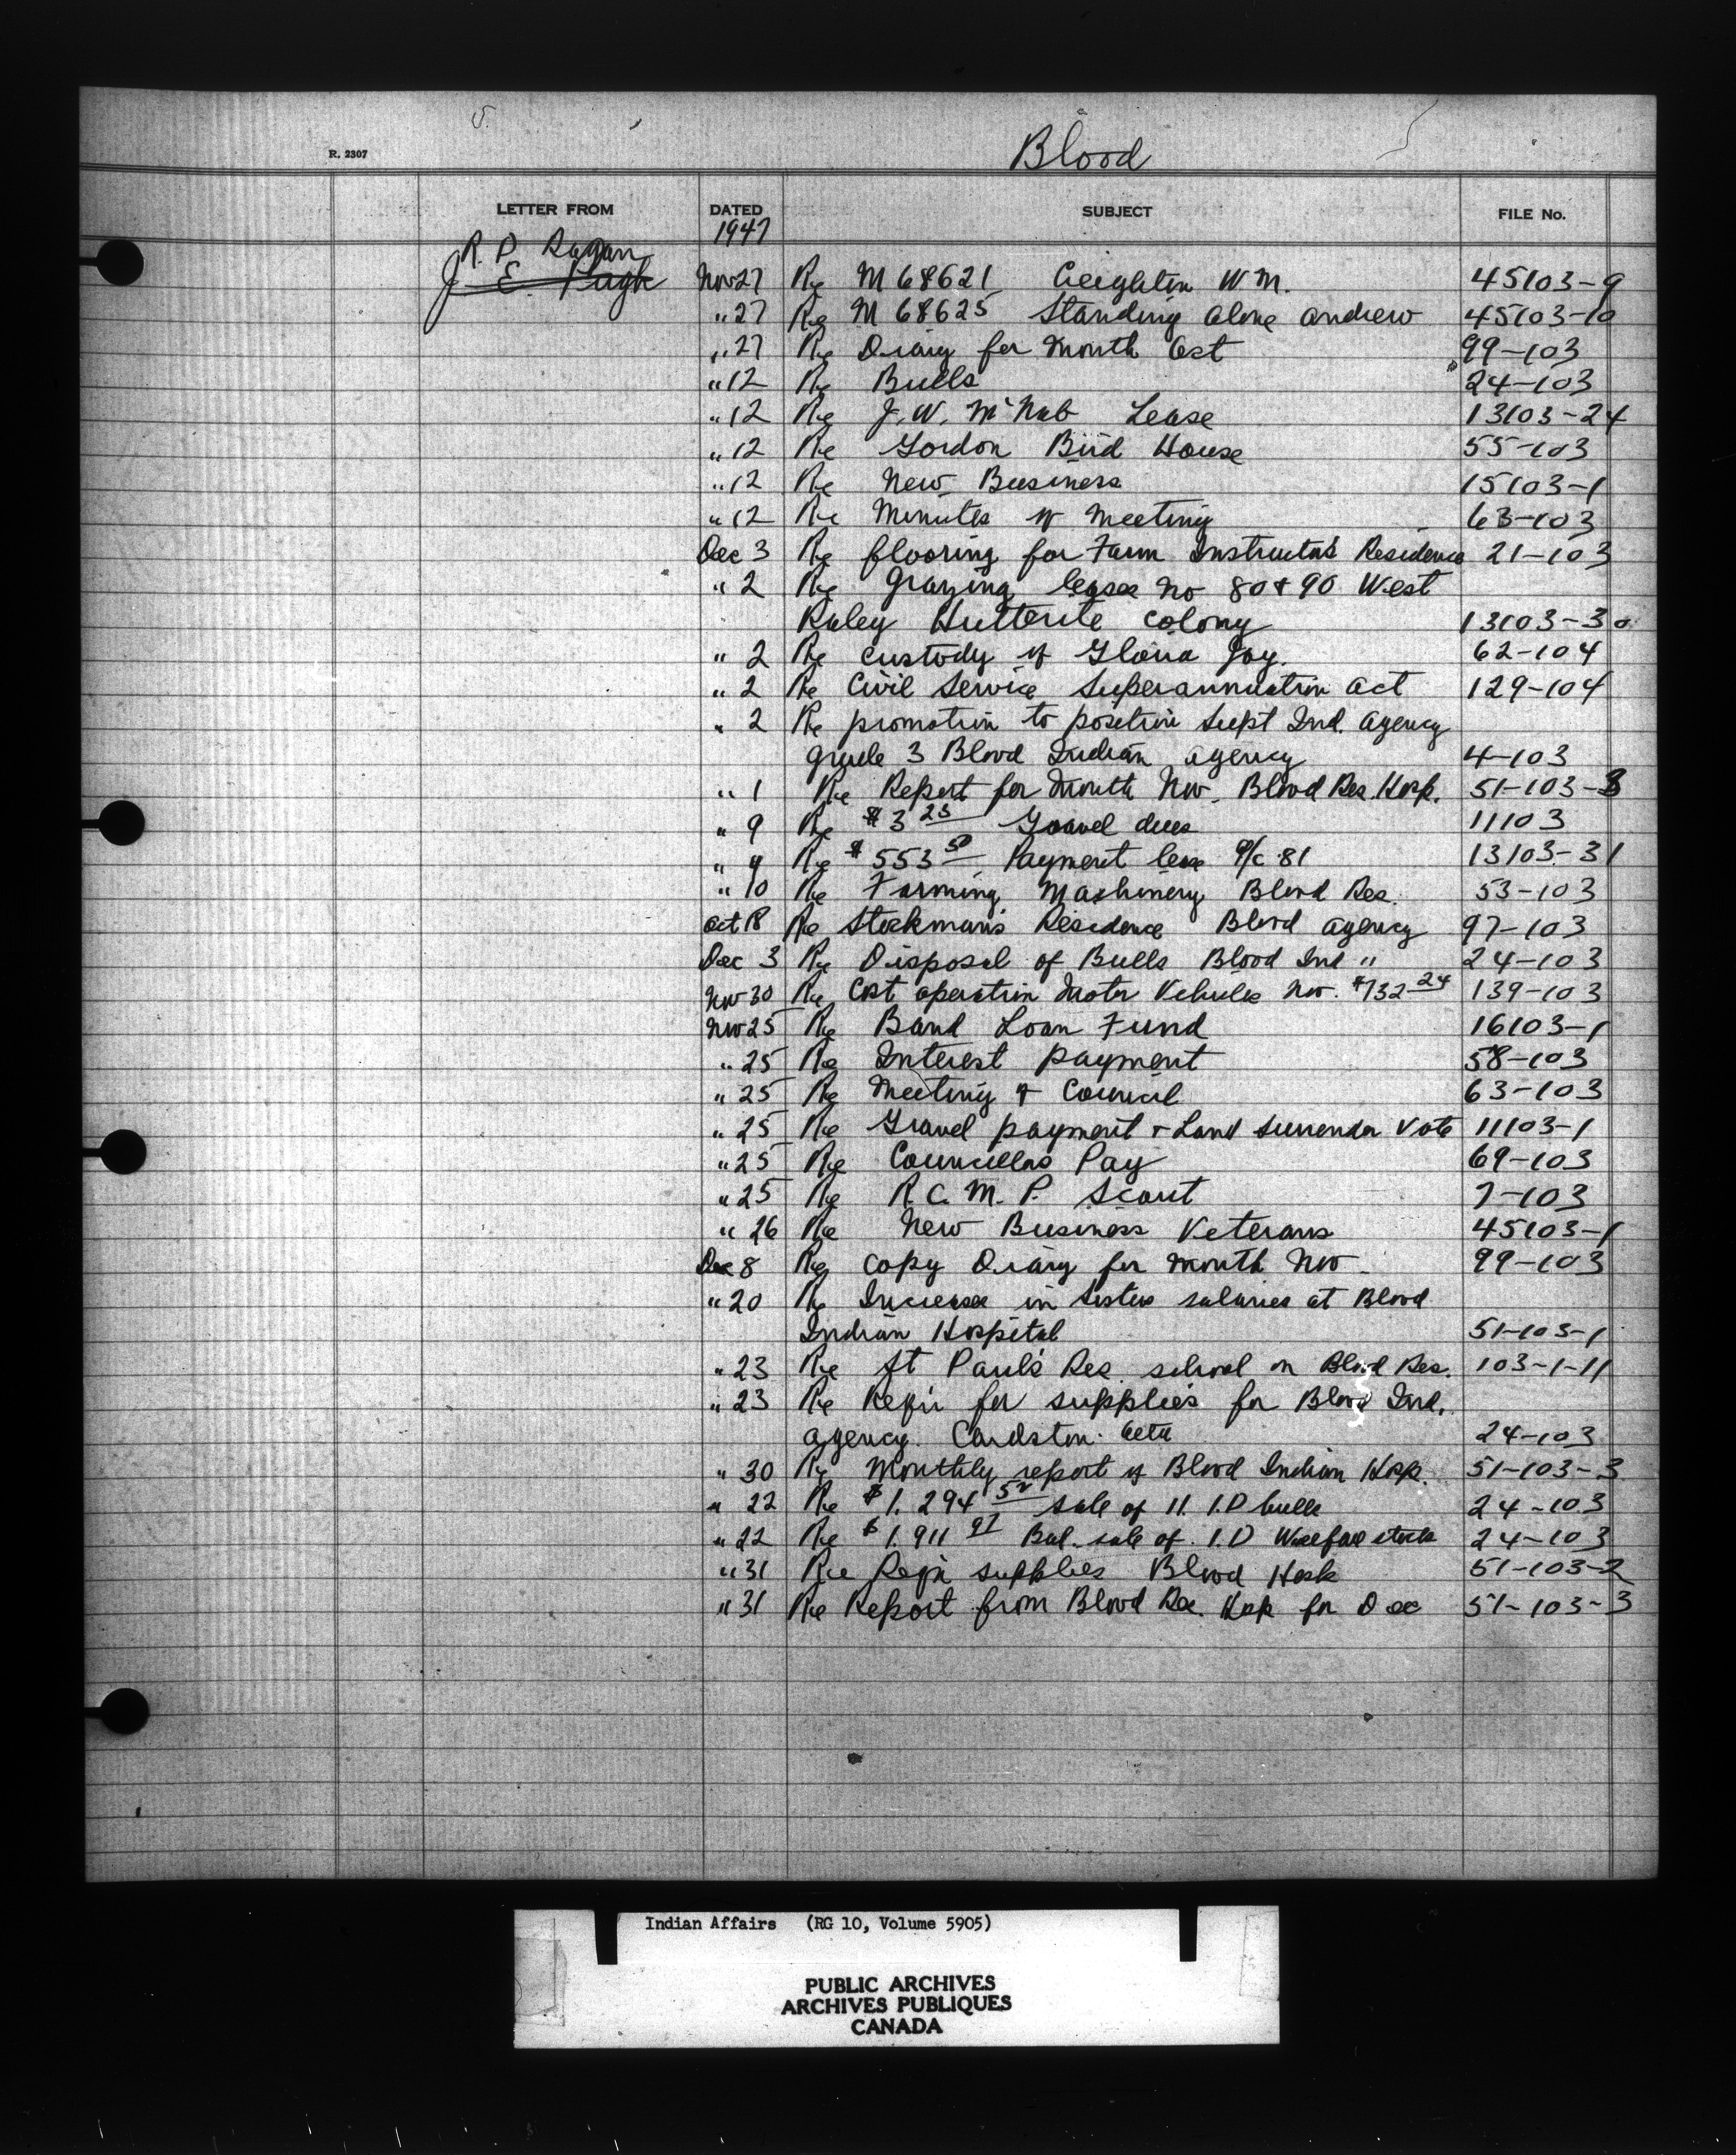 R. 2307
Blood
LETTER FROM DATED SUBJECT FILE No.
1947
R. P. Ragan
J. E. Pugh Nov 27 Re M 68621 Creighton W M. 45103-9
" 27 Re M 68625 Standing Alone Andrew 45103-10
" 27 Re Diary for Month Oct 99-103
" 12 Re Bulls 24-103
" 12 Re J. W. McNab Lease 13103-24
" 12 Re Gordon Bird House 55-103
" 12 Re New Business 15103-1
" 12 Re Minutes of Meeting 63-103
Dec 3 Re flooring for Farm Instructor's Residence 21-103
" 2 Re Grazing leases No 80 & 90 West
Raley Hutterite Colony 13103-30
" 2 Re Custody of Gloria Joy. 62-104
" 2 Re Civil Service Superannuation Act 129-104
" 2 Re promotion to position Supt Ind. Agency
grade 3 Blood Indian Agency 4-103
" 1 Re Report for Month Nov. Blood Res. Hosp. 51-103-3
" 9 Re $3 25 Gravel dues 11103
" 9 Re $553 50 Payment lease G/C 81 13103-31
" 10 Re Farming Machinery Blood Res. 53-103
Oct 18 Re Stockman's Residence Blood Agency 97-103
Dec 3 Re Disposal of Bulls Blood Ind " 24-103
Nov 30 Re Cost operation Motor Vehicles Nov. $732 24 139-103
Nov 25 Re Band Loan Fund 16103-1
" 25 Re Interest payment 58-103
" 25 Re Meeting of Council 63-103
" 25 Re Gravel payment & Land Surrender Vote 11103-1
" 25 Re Councillors Pay 69-103
" 25 Re R. C. M. P. Scout 7-103
" 26 Re New Business Veterans 45103-1
Dec 8 Re copy Diary for month Nov. 99-103
" 20 Re Increase in Sisters salaries at Blood
Indian Hospital 51-103-1
" 23 Re St Paul's Res. school on Blood Res. 103-1-11
" 23 Re Reqn for supplies for Blood Ind.
agency. Cardston. Alta 24-103
" 30 Re Monthly report of Blood Indian Hosp. 51-103-3
" 22 Re $1,294 52 sale of 11 I.D bulls 24-103
" 22 Re $1,911 97 Bal. sale of I.D stock 24-103
" 31 Re Reqn supplies Blood Hosp 51-103-2
" 31 Re Report from Blood Res. Hosp for Dec 51-103-3
Indian Affairs (RG 10, Volume 5905)
PUBLIC ARCHIVES
ARCHIVES PUBLIQUES
CANADA